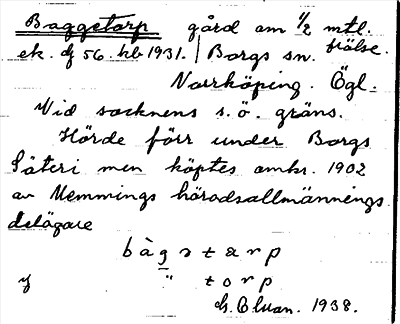 Baggetorp gård om 1/2 mtl. frälse.
ek. df 56. hb 1931. | Borgs sn.
Norrköping. Ögl.
Vid socknens s.ö. gräns.
Hörde förr under Borgs
Säteri men köptes omkr. 1902
av Memmings häradsallmännings
delägare
bàgətarp
y " torp
1938.